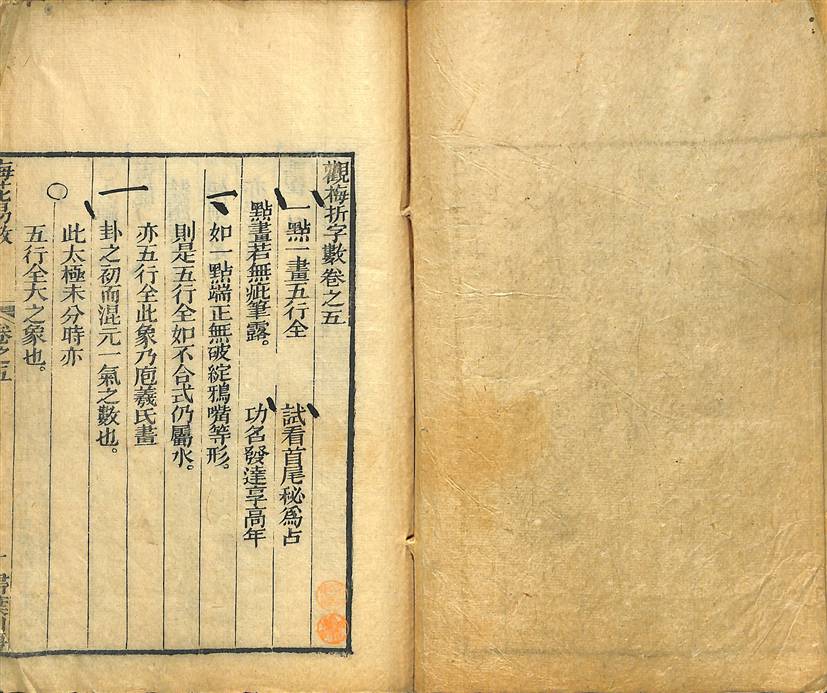 觀梅折字數卷之五
一點一畫五行全　試看首尾秘爲占
點畫若無疵筆露。　功名發達享高年
如一點端正無破綻鴉嘴等形。
則是五行全如不合式仍屬水。
亦五行全此象乃庖羲氏畫
一
卦之初而混元一氣之數也。
〇
此太極未分時亦
五行全大之象也。
梅花易數
卷之五
一